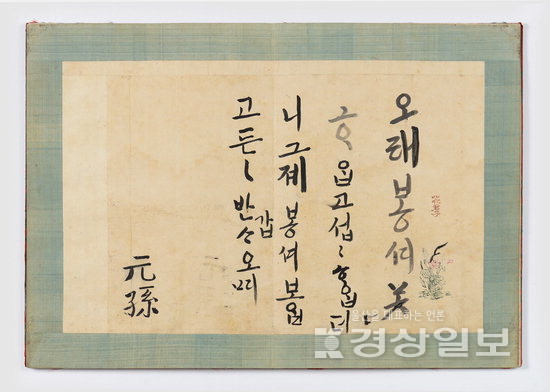 오래봉셔못
ᄒᆞ옵고섭〻ᄒᆞ옵더
니그제봉셔보옵
고든〻반갑ᄉᆞ오며
元孫
울산을 대표하는 언론
경상일보